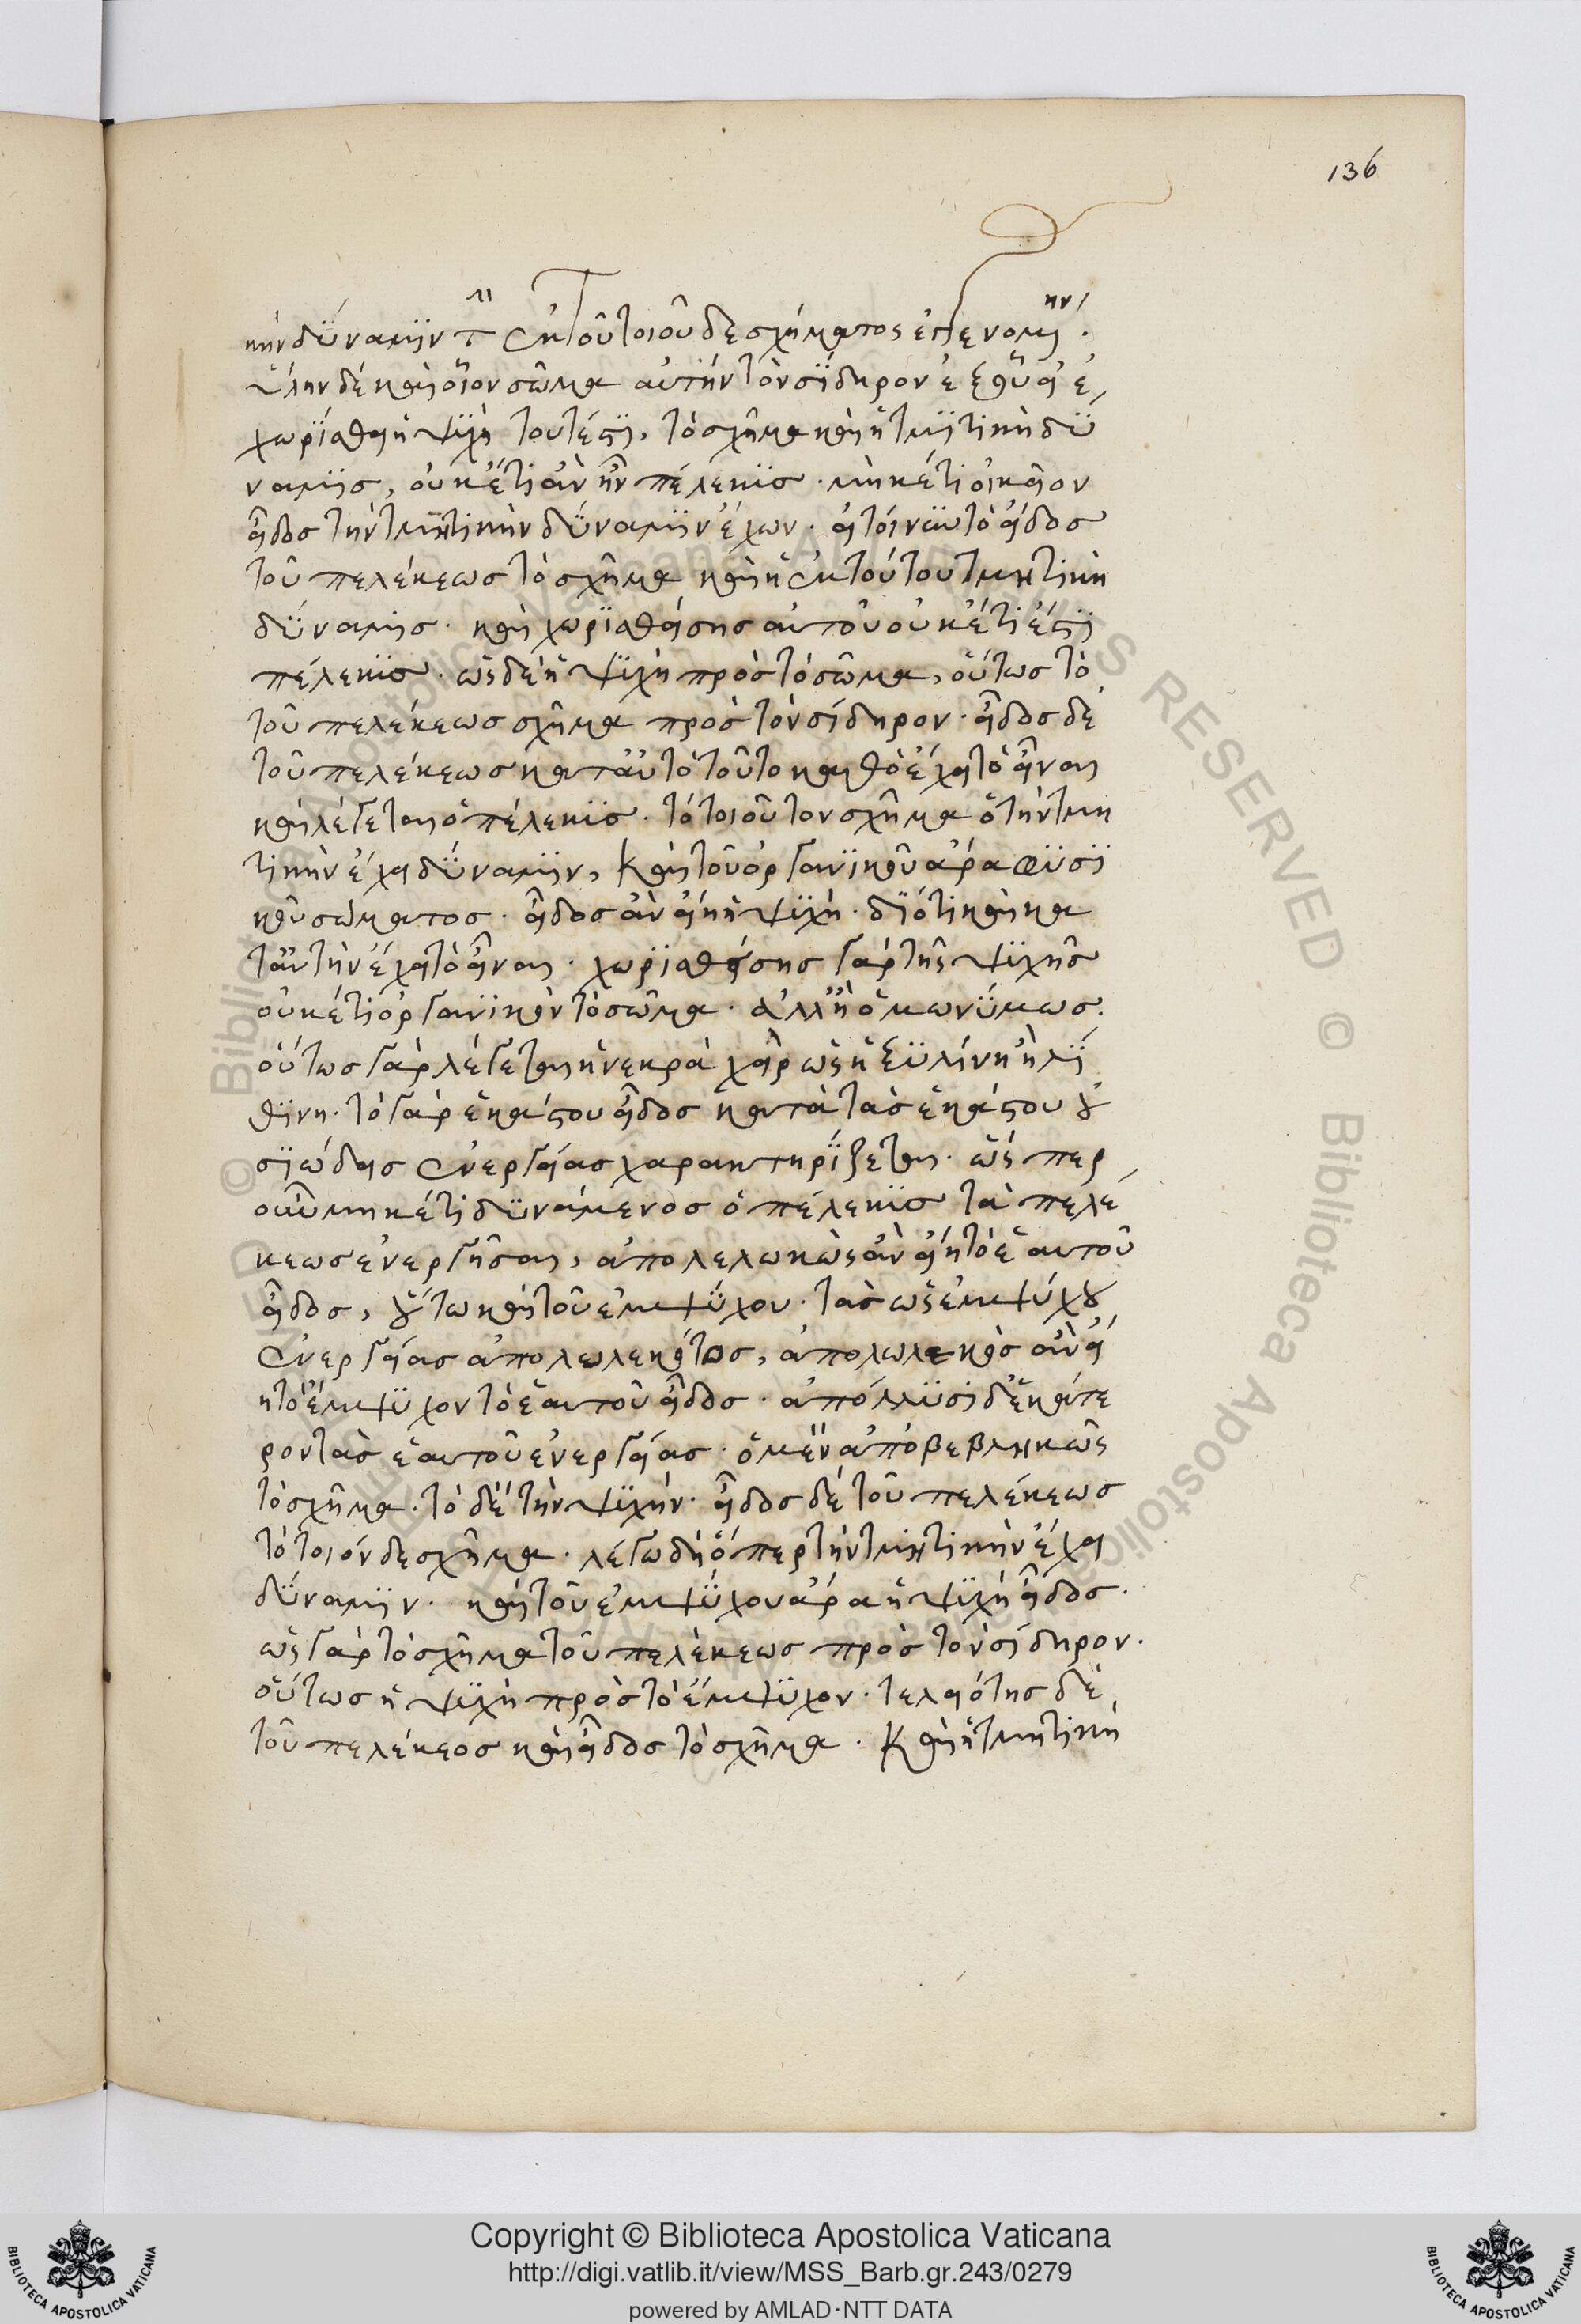 136
κὴν δύναμιν τὴν ἐκ τοῦ τοιοῦδε σχήματος ἐπιγενομένην.
ὕλην δὲ καὶ οἷον σῶμα αὐτὴν τὸν σίδηρον ἐξ οὗ εἰ ἐ
χωρίσθη ἡ ψυχὴ τουτέστι, τὸ σχῆμα καὶ ἡ τμητικὴ δύ
ναμις, οὐκέτι ἂν ἦν πέλεκυς. μηκέτι οἰκεῖον
εἶδος τὴν τμητικὴν δύναμιν ἔχων. εἰ τοίνυν τὸ εἶδος
τοῦ πελέκεως τὸ σχῆμα καὶ ἡ ἐκ τούτου τμητικὴ
δύναμις. καὶ χωρισθείσης αὐτοῦ οὐκέτι ἐστὶ
πέλεκυς. ὡς δὲ ἡ ψυχὴ πρὸς τὸ σῶμα, οὕτως τὸ
τοῦ πελέκεως σχῆμα πρὸς τὸν σίδηρον. εἶδος δὲ
τοῦ πελέκεως κατ' αὐτὸ τοῦτο καθὸ ἔχει τὸ εἶναι
καὶ λέγεται ὁ πέλεκυς. τὸ τοιοῦτον σχῆμα ὃ τὴν τμη
τικὴν ἔχει δύναμιν, καὶ τοῦ ὀργανικοῦ ἄρα φυσι
κοῦ σώματος. εἶδος ἂν εἴη ἡ ψυχὴ. διότι καὶ κα
τ' αὐτὴν ἔχει τὸ εἶναι. χωρισθείσης γὰρ τῆς ψυχῆς
οὐκέτι ὀργανικὸν τὸ σῶμα. ἀλλ' ἢ ὁμωνύμως.
οὕτως γὰρ λέγεται ἡ νεκρὰ χεὶρ ὡς ἡ ξυλίνη ἢ λι
θίνη. τὸ γὰρ ἑκάστου εἶδος κατὰ τὰς ἑκάστου οὐ
σιώδεις ἐνεργείας χαρακτηρίζεται. ὥσπερ
οὖν μηκέτι δυνάμενος ὁ πέλεκυς τὰ πελέ
κεως ἐνεργῆσαι, ἀπολελωκὼς ἂν εἴη τὸ ἑαυτοῦ
εἶδος, οὕτω καὶ τοῦ ἐμψύχου. τὰς ὡς ἐμψύχου
ἐνεργείας ἀπολωλεκότος, ἀπολωλεκὸς ἂν εἴ
η τὸ ἔμψυχον τὸ ἑαυτοῦ εἶδος. ἀπόλλυσι δ' ἑκάτε
ρον τὰς ἑαυτοῦ ἐνεργείας. ὁ μὲν ἀποβεβληκὼς
τὸ σχῆμα. τὸ δὲ τὴν ψυχήν. εἶδος δὲ τοῦ πελέκεως
τὸ τοιόνδε σχῆμα. λέγω δὴ ὅπερ τὴν τμητικὴν ἔχει
δύναμιν. καὶ τοῦ ἐμψύχου ἄρα ἡ ψυχὴ εἶδος.
ὡς γὰρ τὸ σχῆμα τοῦ πελέκεως πρὸς τὸν σίδηρον.
οὕτως ἡ ψυχὴ πρὸς τὸ ἔμψυχον. τελειότης δὲ
τοῦ πελέκεος καὶ εἶδος τὸ σχῆμα. καὶ ἡ τμητικὴ
© Biblioteca Apostolica Vaticana ALL RIGHTS RESERVED
Copyright © Biblioteca Apostolica Vaticana
http://digi.vatlib.it/view/MSS_Barb.gr.243/0279
powered by AMLAD·NTT DATA
BIBLIOTECA APOSTOLICA VATICANA
BIBLIOTECA APOSTOLICA VATICANA